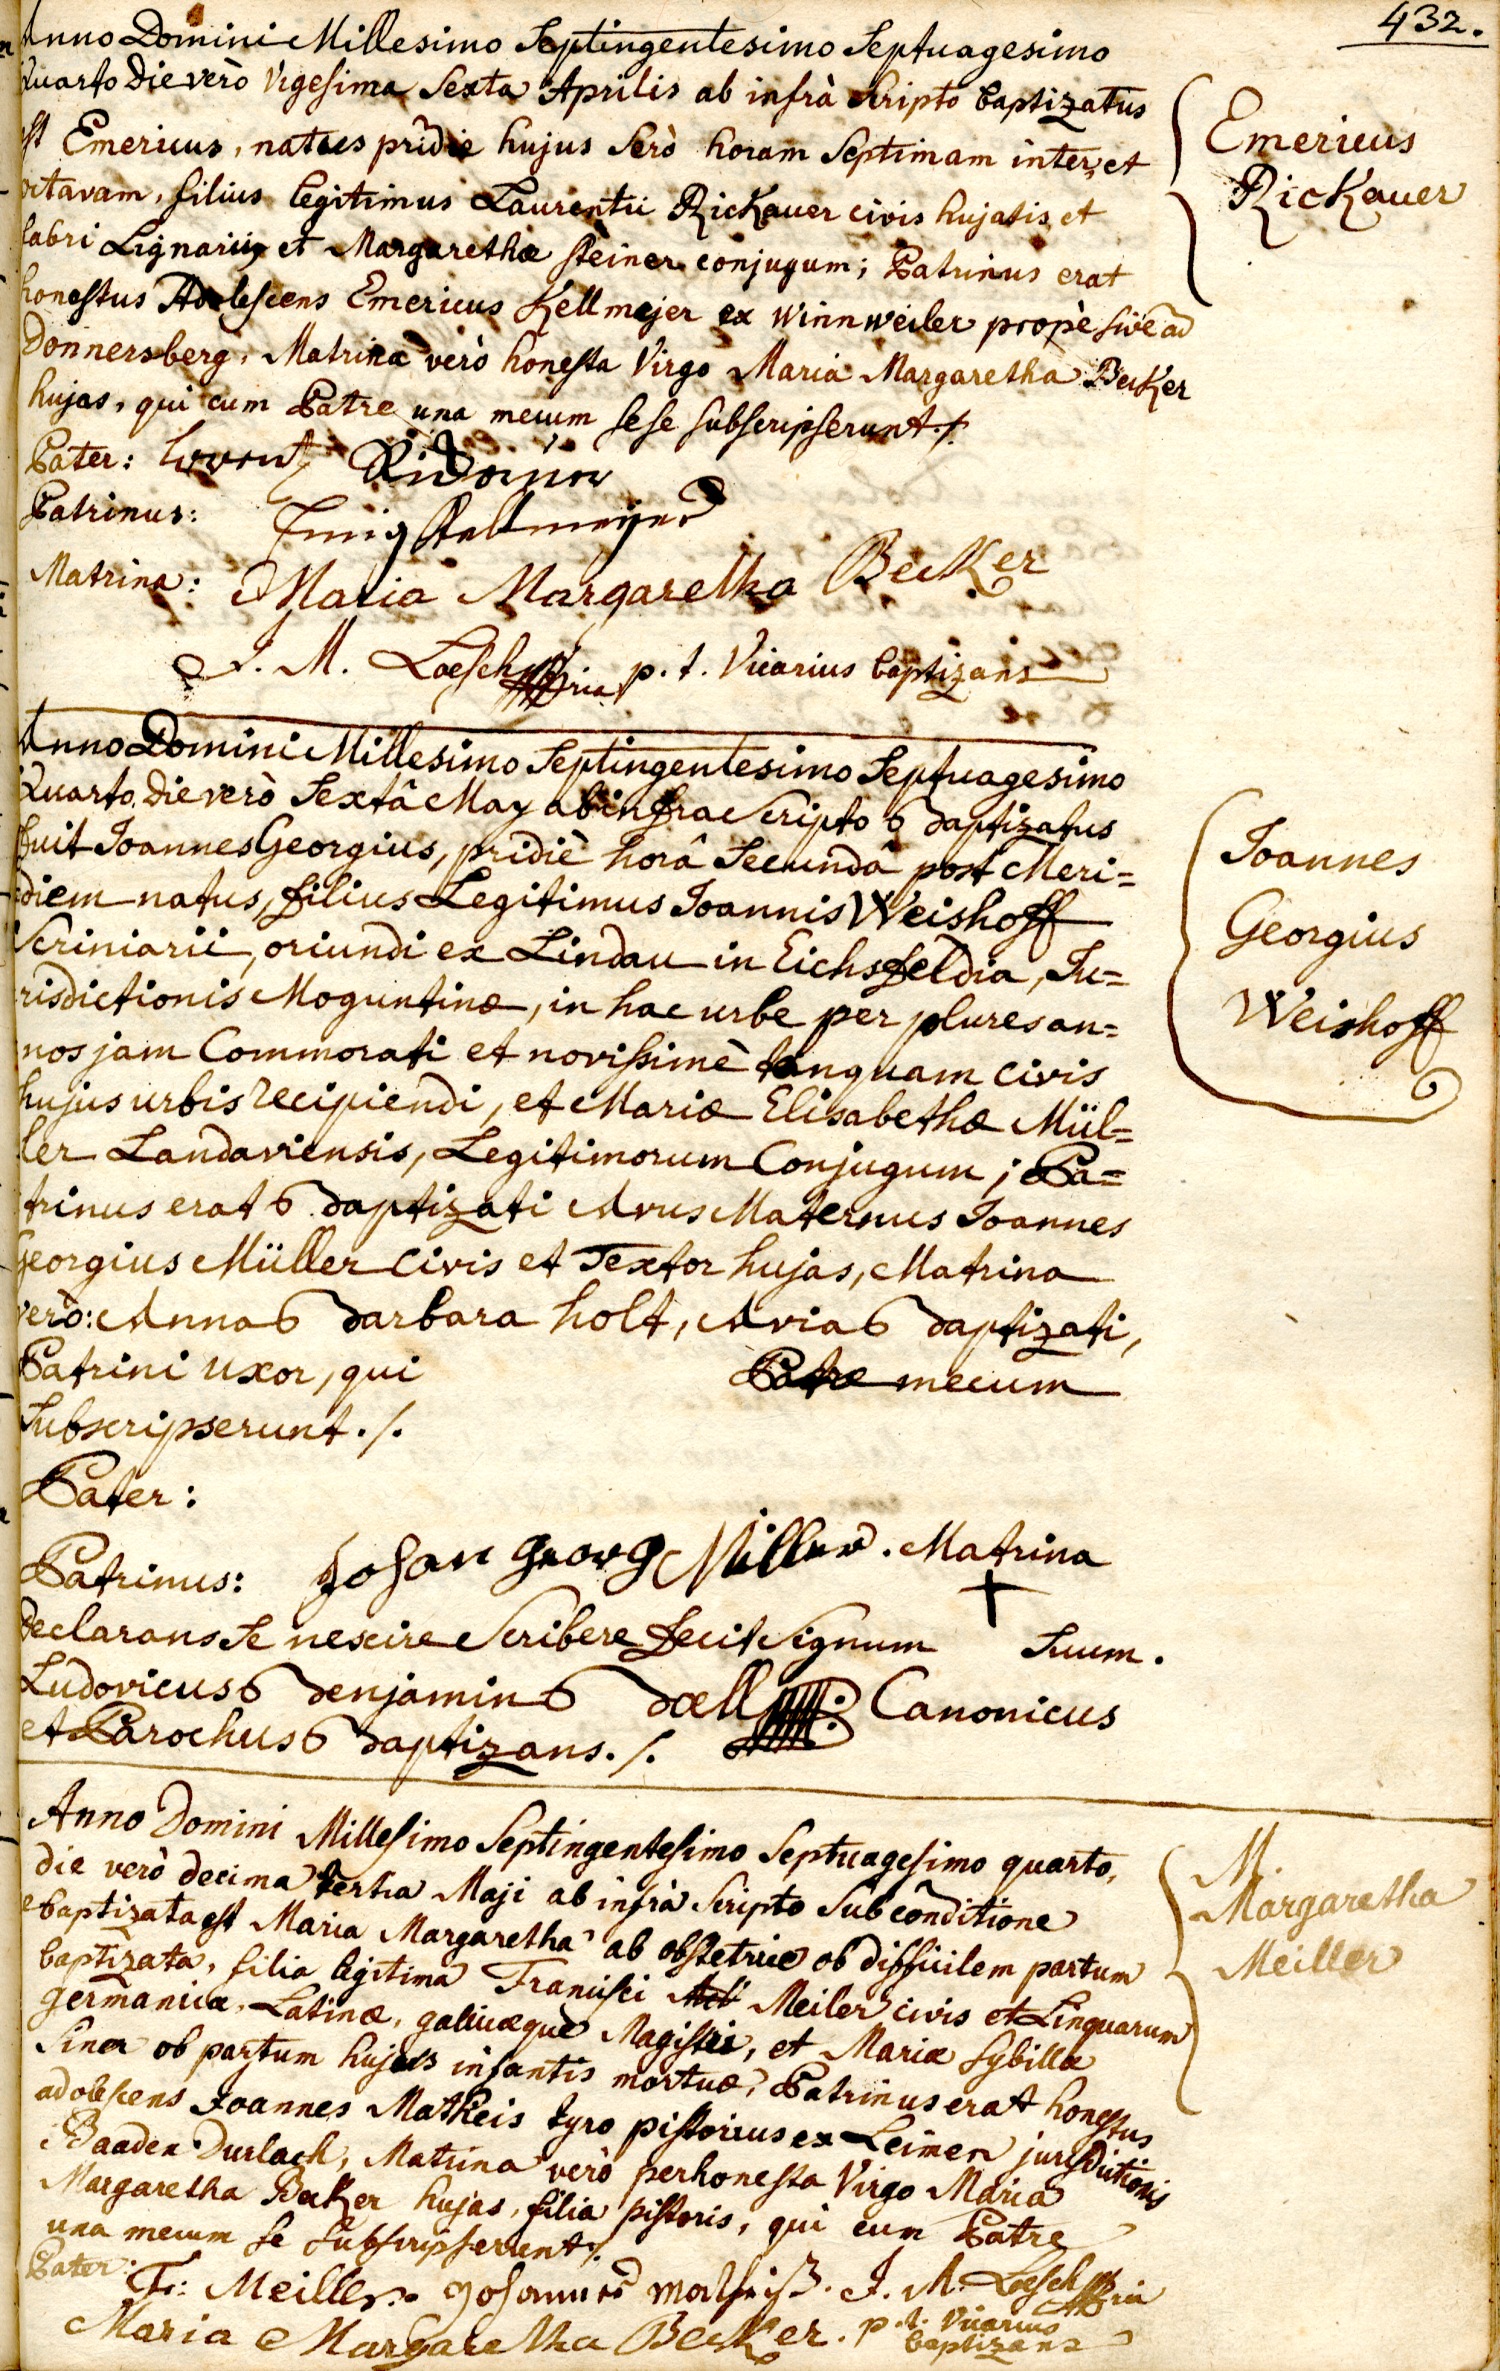 432.
Anno Domini Millesimo Septingentesimo Septuagesimo
Quarto die verò Vigesima Sexta Aprilis ab infrà scripto baptizatus
est Emericus, natus pridie hujus Serò horam Septimam inter, et
octavam, filius legitimus Laurentii Rickauer civis hujatis, et
fabri Lignarii, et Margarethæ steiner conjugum; Patrinus erat
honestus Adolescens Emericus Kellmejer ex Winnweiler propè sive ad
Donnersberg, Matrina verò honesta Virgo Maria Margaretha Becker
hujas, qui cum Patre una mecum sese subscripserunt ./.
Emericus
Rickauer
Pater: Lorentz
Patrinus: Kellmeijer
Matrina: Maria Margaretha Becker
J. M. Loesch p. t. Vicarius baptizans
Anno Domini Millesimo Septingentesimo Septuagesimo
Quarto, die verò Sextâ May ab infra Scripto Baptizatus
fuit Joannes Georgius, pridiè horâ Secundâ post Meri=
diem natus, filius Legitimus Joannis Weishoff
Scriniarii, oriundi ex Lindau in Eichsfeldia, Ju=
risdictionis Moguntinæ, in hac urbe per plures an=
nos jam Commorati et novissimè tanquam civis
hujus urbis recipiendi, et Mariæ Elisabethæ Mül=
ler Landaviensis, Legitimorum Conjugum; Pa=
trinus erat Baptizati Avus Maternus Joannes
Georgius Müller Civis et Textor hujas, Matrina
verò: Anna Barbara holt, Avia Baptizati,
Patrini uxor, qui Patre mecum
Subscripserunt ./.
Joannes
Georgius
Weishoff
Pater:
Patrinus: Johan Georg Miller. Matrina
declarans se nescire Scribere fecit Signum + Suum.
Ludovicus Benjamin Boell Canonicus
et Parochus Baptizans ./.
Anno Domini Millesimo Septingentesimo Septuagesimo quarto,
die verò decima tertia Maji ab infrà Scripto sub conditione
baptizata est Maria Margaretha ab obstetrice ob difficilem partum
baptizata, filia legitima Francisci Meiler civis et Linguarum
germanicæ, Latinæ, galicæque Magistri, et Mariæ Sybillæ
Siner ob partum hujus infantis mortuæ, Patrinus erat honestus
adolescens Joannes Matheis tyro pistorius ex Leimen jurisdictionis
Baaden Durlach, Matrina verò perhonesta Virgo Maria
Margaretha Becker hujas, filia pistoris, qui cum Patre
una mecum se subscripserunt ./.
M.
Margaretha
Meiller
Pater: Fr: Meiller. Johannes J. M. Loesch
Maria Margaretha Becker. p. t. Vicarius
baptizans